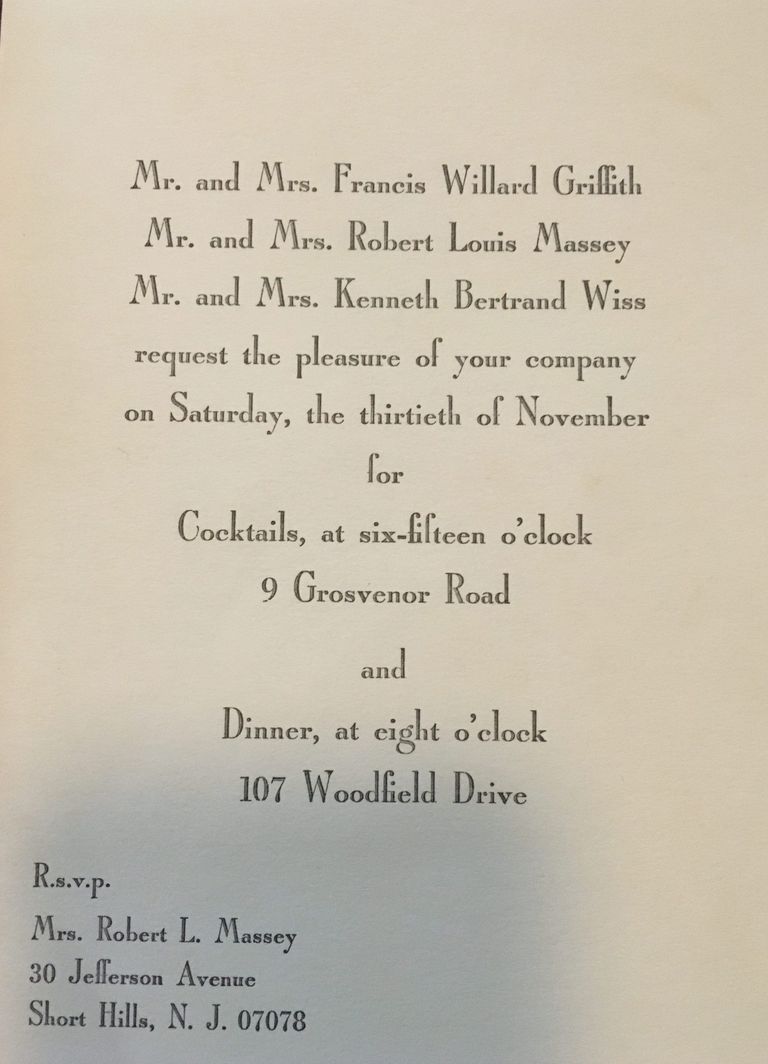 Mr. and Mrs. Francis Willard Griffith
Mr. and Mrs. Robert Louis Massey
Mr. and Mrs. Kenneth Bertrand Wiss
request the pleasure of your company
on Saturday, the thirtieth of November
for
Cocktails, at six-fifteen o'clock
9 Grosvenor Road
and
Dinner, at eight o'clock
107 Woodfield Drive
R.s.v.p.
Mrs. Robert L. Massey
30 Jefferson Avenue
Short Hills, N. J. 07078